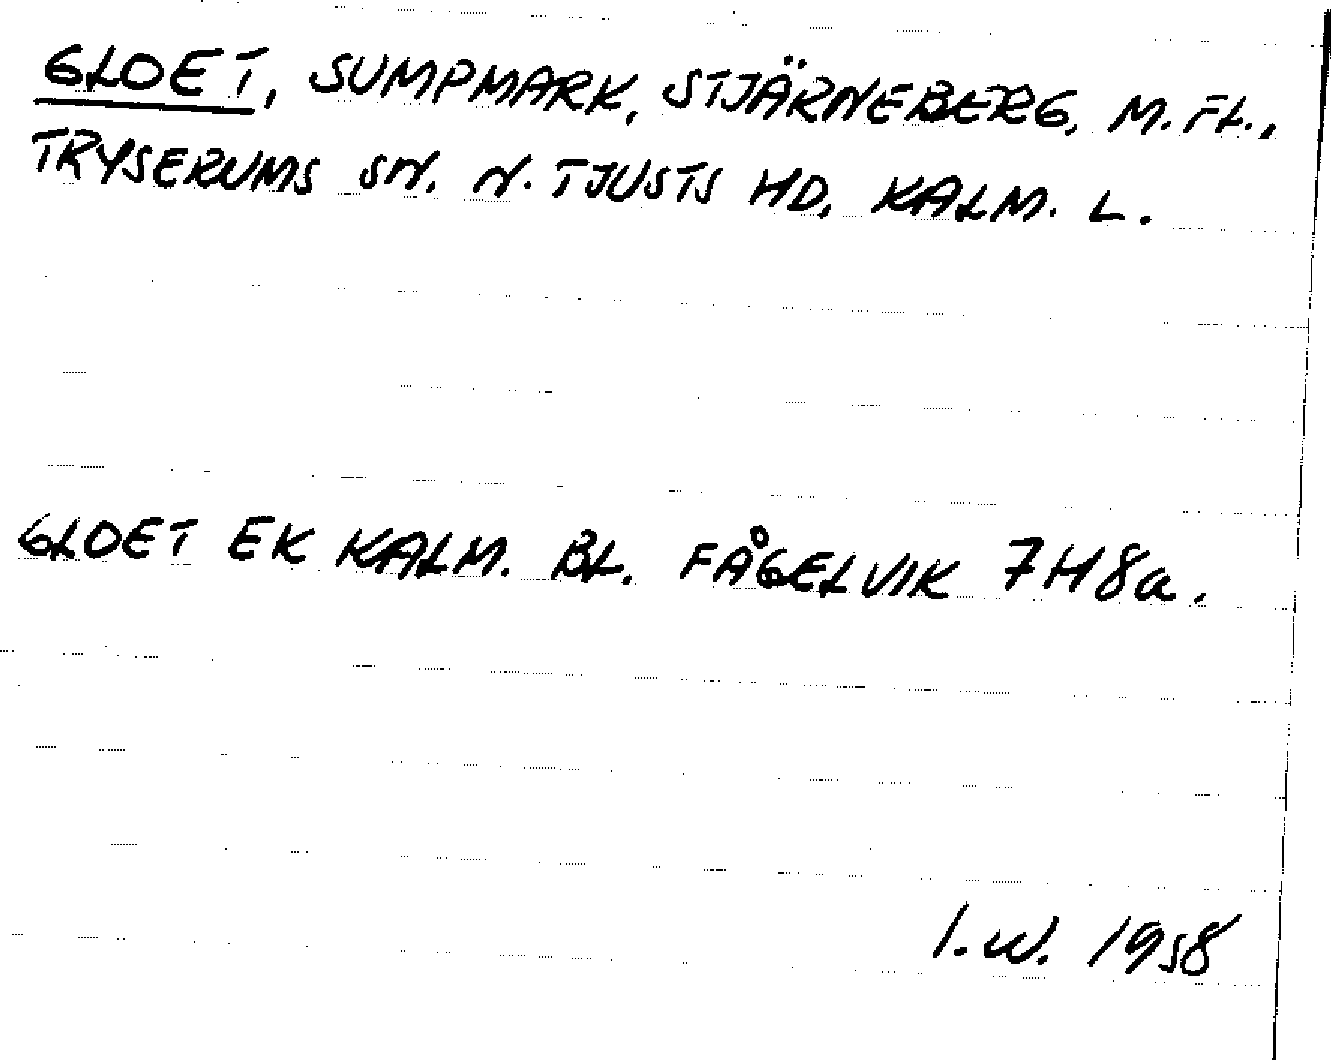 GLOET, SUMPMARK, STJÄRNEBERG, M.FL.,
TRYSERUMS SN. N. TJUSTS HD, KALM. L.
GLOET EK KALM. BL. FÅGELVIK 7H8a.
I.W. 1958